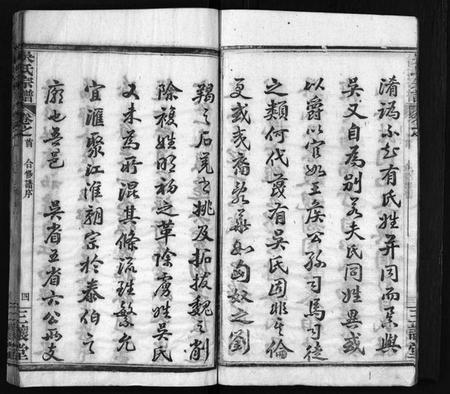 淆訛不知有氏姓并同而系與
吳又自為別若夫氏同姓異或
以爵以官如王侯公孫司馬司徒
之類何代蔑有吳氏固非其倫
更或戎裔亂華如匈奴之劉
羯之石氐之姚及拓拔魏之削
除複姓明初之革除虜姓吳氏
又未為所混其條流雖繁允
宜滙聚江淮朝宗於泰伯之
廟也吾邑 吳省五省六公兩支
吳氏宗譜
卷之首 合修譜序
四
三讓堂
三讓堂